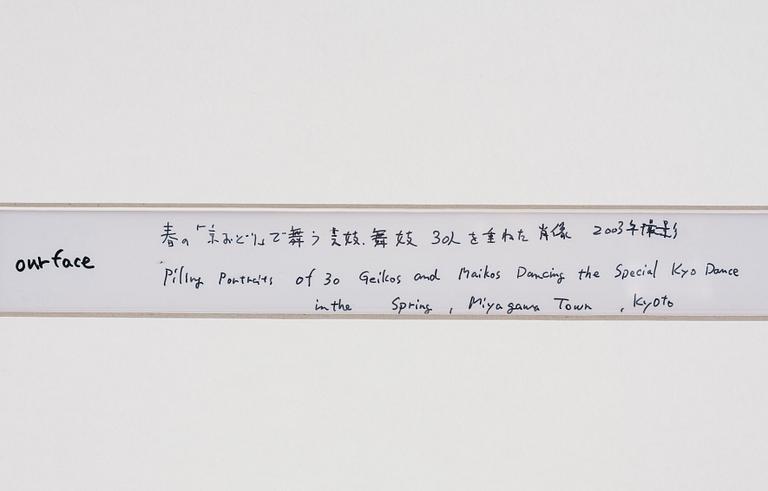 our face
春の「京おどり」で舞う芸妓、舞妓 30人を重ねた肖像 2003年撮影
Piling Portraits of 30 Geikos and Maikos Dancing the Special Kyo Dance
in the Spring, Miyagawa Town, Kyoto